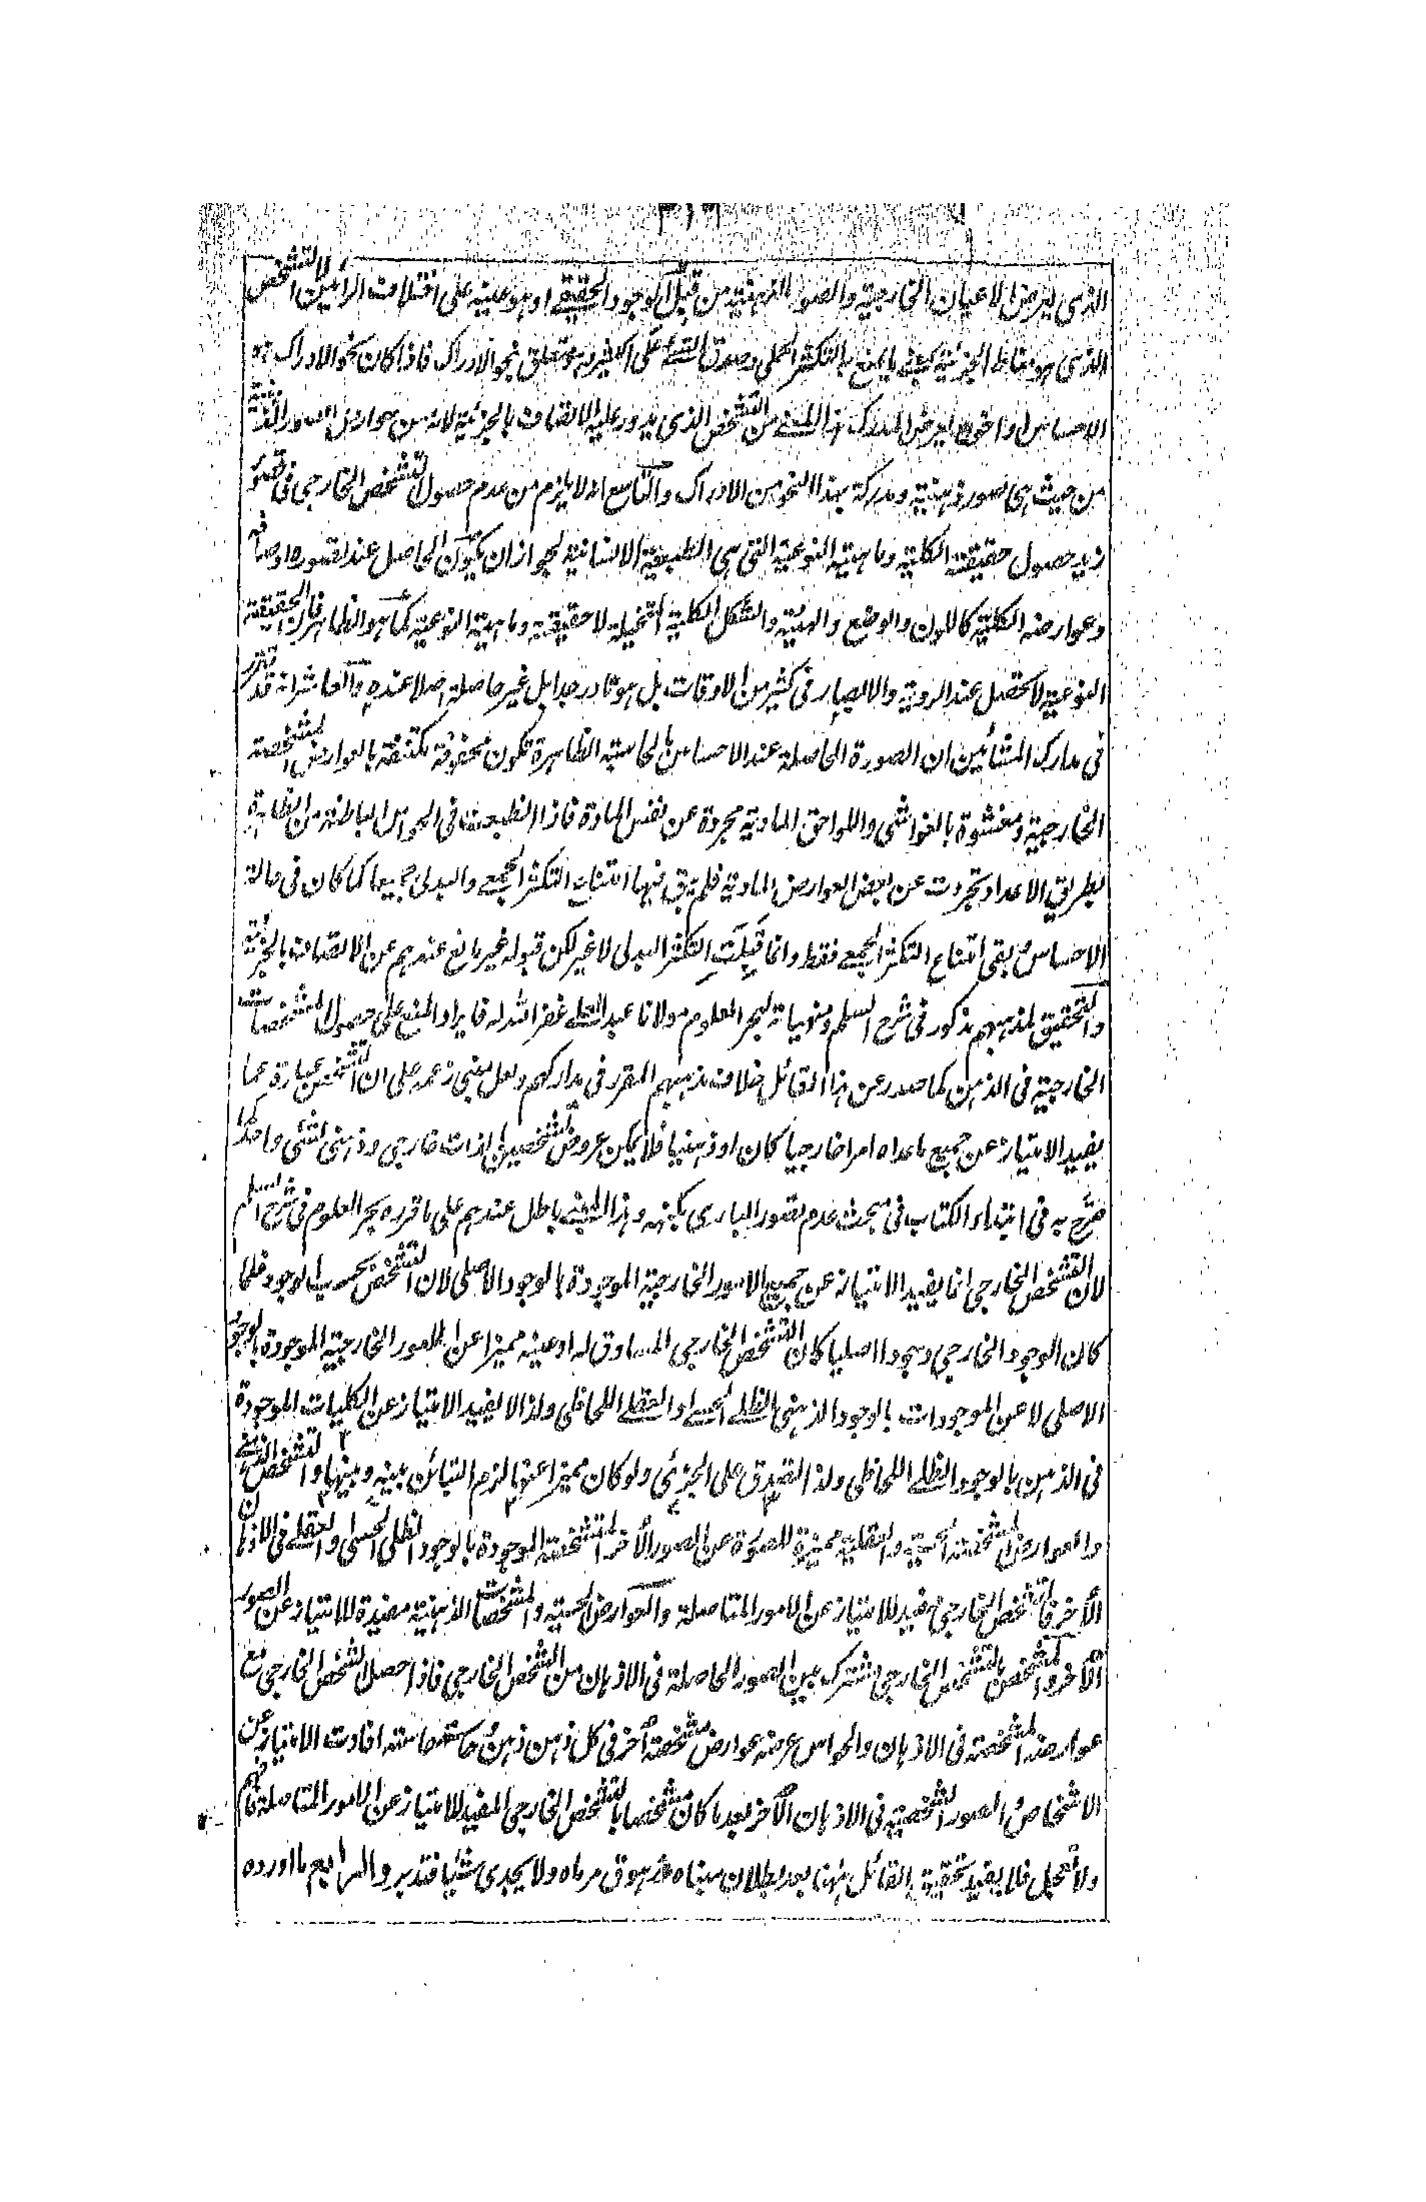 الذی یعرض الاعیان الخارجیة والصور الذهنیة من قبل الوجود الحقیقے او هو عینه علی اختلاف الرائین لا التشخص
الذی هو مناط الجزئیة یعنے ما یمنع بالتکثر الحملی وصدق الشئ علی الکثیر هو متعلق بنحو الادراک فاذا کان نحو الادراک هو
الاحساس او نحوه یعرض المدرک هذا المعنے من التشخص الذی یدور علیه الاتصاف بالجزئیة لانه من عوارض الصور الذهنیة
من حیث هی صور ذهنیة ومدرکة بهذا النحو من الادراک والتاسع انه لا یلزم من عدم حصول التشخص الخارجی فی تصور
زید حصول حقیقته الکلیة وماهیته النوعیة التی هی الطبیعة الانسانیة لجواز ان یکون الحاصل عند تصوره اوصافه
وعوارضه الکلیة کاللون والوضع والهیئة والشکل الکلیة المتخیلة لا حقیقته وماهیته النوعیة کما هو الظاهر فان الحقیقة
النوعیة لا تحصل عند الرویة والابصار فی کثیر من الاوقات بل هو نادر جدا بل غیر حاصلة اصلا عنده والعاشر انه قد تقرر
فی مدارک المشائین ان الصورة الحاصلة عند الاحساس بالحاسة الظاهرة تکون محفوفة مکتنفة بالعوارض المشخصة
الخارجیة ومغشوة بالغواشی واللواحق المادیة مجردة عن نفس المادة فاذا انطبعت فی الحواس الباطنة من الظاهرة
بطریق الاعداد تجردت عن بعض العوارض المادیة فلم یبق فیها امتناع التکثر الجمعے والبدلی جمیعا کما کان فی حالة
الاحساس بل بقی امتناع التکثر الجمعے فقط وانما قبلت التکثر البدلی لا غیر لکن قبوله غیر مانع عندهم عن الاتصاف بالجزئیة
والتحقیق لمذهبهم مذکور فی شرح السلم ومنهیاته لبحر العلوم مولانا عبد العلے غفر الله له فایراد المنع علی حصول المشخصات
الخارجیة فی الذهن کما صدر عن هذا القائل خلاف مذهبهم المقرر فی مدارکهم ولعل مبنی زعمه علی ان التشخص عبارة عما
یفید الامتیاز عن جمیع ماعداه امرا خارجیا کان او ذهنیا فلا یمکن عروض تشخصین لذات خارجی وذهنی لشئ واحد کما
صرح به فی ابتداء الکتاب فی مبحث عدم تصور الباری بکنهه وهذا المعنے باطل عندهم علی ما قرره بحر العلوم فی شرح السلم
لان التشخص الخارجی انما یفید الامتیاز عن جمیع الامور الخارجیة الموجودة بالوجود الاصلی لان التشخص بحسب الوجود فلما
کان الوجود الخارجی وجودا اصلیا کان التشخص الخارجی المساوق له او عینه ممیزا عن الامور الخارجیة الموجودة بالوجود
الاصلی لا عن الموجودات بالوجود الذهنی الظلے الحسے او العقلے اللحاظی ولذا لا یفید الامتیاز عن الکلیات الموجودة
فی الذهن بالوجود الظلے اللحاظی ولذا تصدق علی الجزئی ولو کان ممیزا عنها لزم التباین بینه وبینها والتشخص الذهنے
والعوارض المشخصة الحسیة والعقلیة ممیزة للصورة عن الصور الأخر المتشخصة الموجودة بالوجود الظلی الحسی والعقلے فی الاذهان
الأخر فالتشخص الخارجی مفید للامتیاز عن الامور المتاصلة والعوارض الحسیة والمشخصات الذهنیة مفیدة للامتیاز عن الصور
الأخر والمتشخص بالتشخص الخارجی مشترک بین الصور الحاصلة فی الاذهان من الشخص الخارجی فاذا حصل الشخص الخارجی مع
عوارضه المشخصة فی الاذهان والحواس عرضه عوارض مشخصة أخر فی کل ذهن ذهن وحاسة حاسة افادت الامتیاز عن
الاشخاص والصور الشخصیة فی الاذهان الأخر بعد ما کان مشخصا بالتشخص الخارجی المفید للامتیاز عن الامور المتاصلة فافهم
ولا تعجل فلا یفید تحقیق القائل ههنا بعد بطلان مبناه وزهوق مرماه ولا یجدی شیئا فتدبر والرابع ما اورده